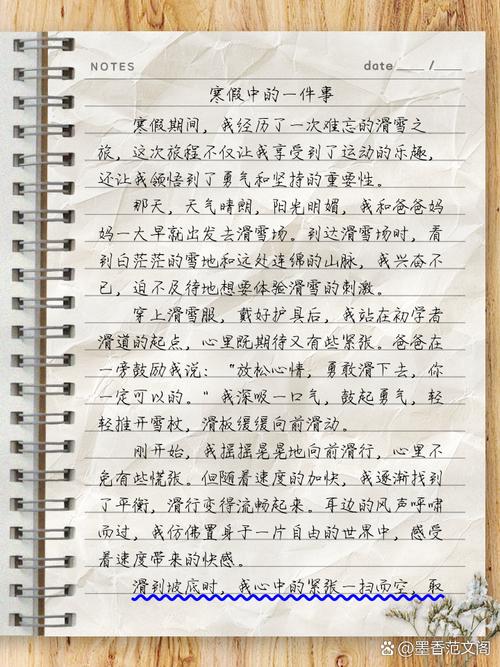 NOTES
date ____ / ____
寒假中的一件事
寒假期间，我经历了一次难忘的滑雪之
旅，这次旅程不仅让我享受到了运动的乐趣，
还让我领悟到了勇气和坚持的重要性。
那天，天气晴朗，阳光明媚，我和爸爸妈
妈一大早就出发去滑雪场。到达滑雪场时，看
到白茫茫的雪地和远处连绵的山脉，我兴奋不
已，迫不及待地想要体验滑雪的刺激。
穿上滑雪服，戴好护具后，我站在初学者
滑道的起点，心里既期待又有些紧张。爸爸在
一旁鼓励我说：“放松心情，勇敢滑下去，你
一定可以的。”我深吸一口气，鼓起勇气，轻
轻推开雪杖，滑板缓缓向前滑动。
刚开始，我摇摇晃晃地向前滑行，心里不
免有些慌张。但随着速度的加快，我逐渐找到
了平衡，滑行变得流畅起来。耳边的风声呼啸
而过，我仿佛置身于一片自由的世界中，感受
着速度带来的快感。
滑到坡底时，我心中的紧张一扫而空，取
墨香范文阁